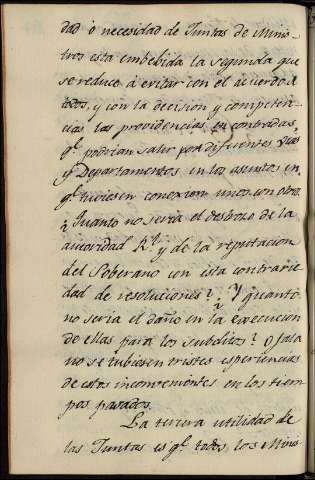 dad ó necesidad de Juntas de Minis-
tros esta embebida la segunda que
se reduce á evitar con el acuerdo de
todos, y con la decision y competen-
cias las providencias encontradas,
qᵉ podrian salir por diferentes vias
y Departamentos en los asuntos en
qᵉ tuviesen conexion unos con otros.
¿Quanto no seria el destrozo de la
autoridad Rˡ y de la reputacion
del Soberano con esta contrarie
dad de resoluciones? ¿Y quanto
no seria el daño en la execucion
de ellas para los subditos? Ojala
no se tubiesen tristes esperiencias
de estos inconvenientes en los tiem
pos pasados.
La tercera utilidad de
las Juntas es qᵉ todos los Minis